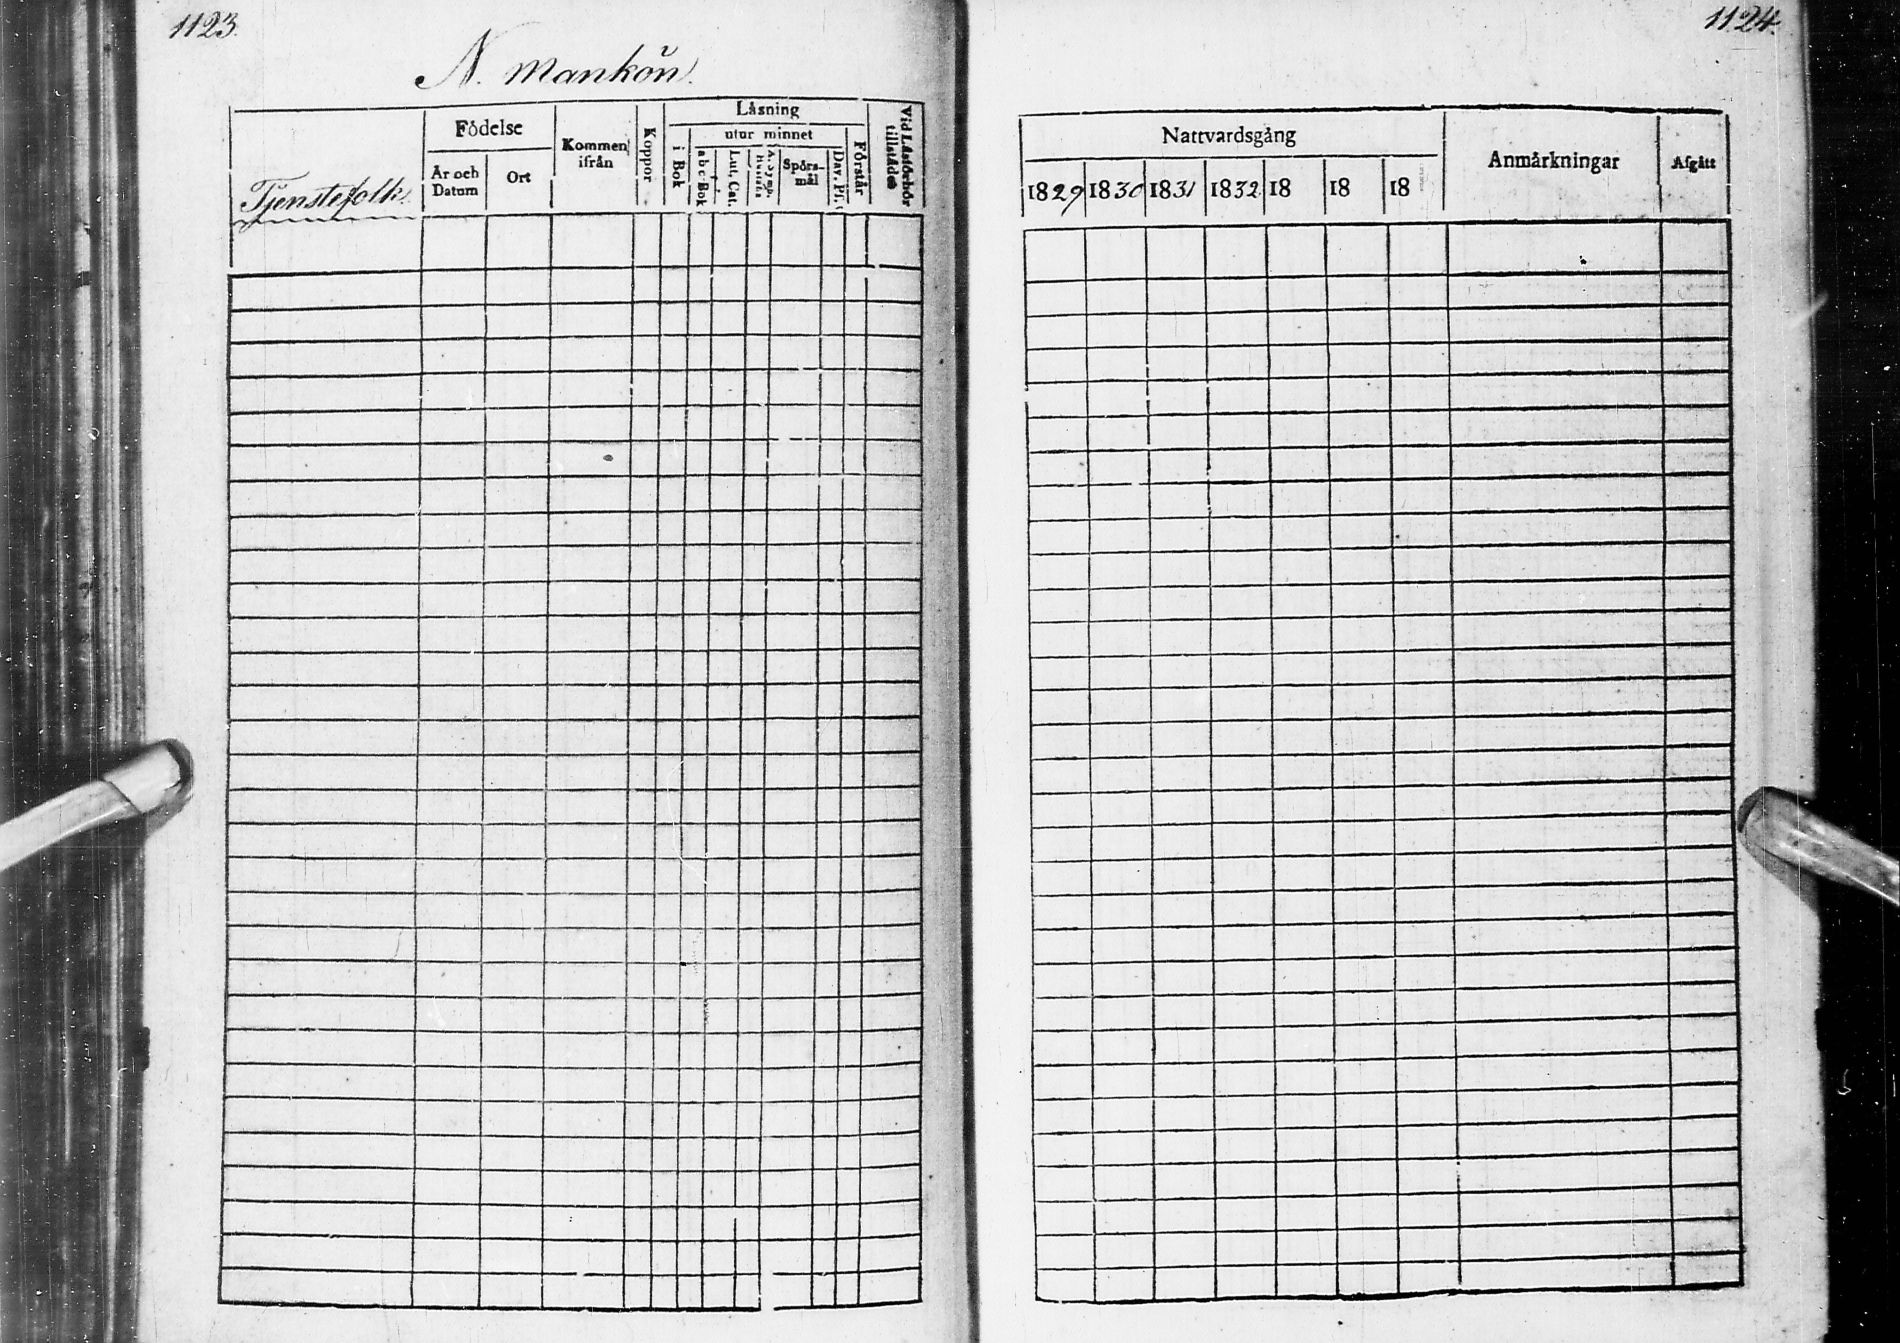 1123.
N. Mankön.
Tjenstefolk.
Födelse
År och Datum
Ort
Kommen ifrån
Koppor
Läsning
i Bok
utur minnet
a b c-Bok
Lut. Cat.
A. Symb.
Spörs-mål
Dav. Ps.
Förstår
Vid Läsförhör tillstädes
1124.
Nattvardsgång
1829 1830 1831 1832 18 18 18
Anmärkningar
Afgått